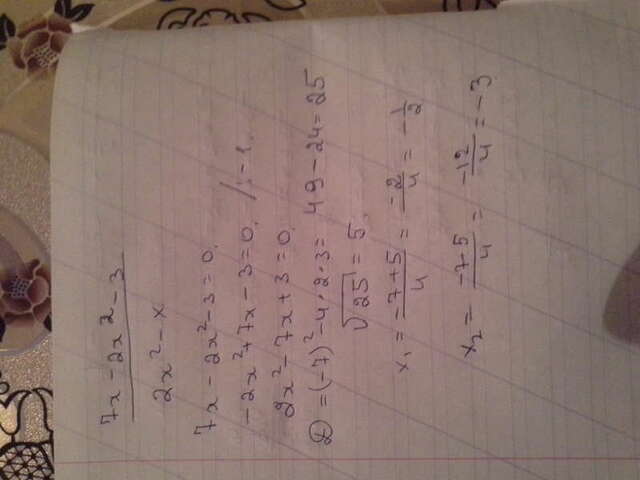 7x - 2x² - 3
2x² - x
7x - 2x² - 3 = 0.
-2x² + 7x - 3 = 0. /:-1.
2x² - 7x + 3 = 0.
D = (-7)² - 4·2·3 = 49 - 24 = 25
√25 = 5.
x₁ = (-7+5)/4 = -2/4 = -1/2
x₂ = (-7-5)/4 = -12/4 = -3